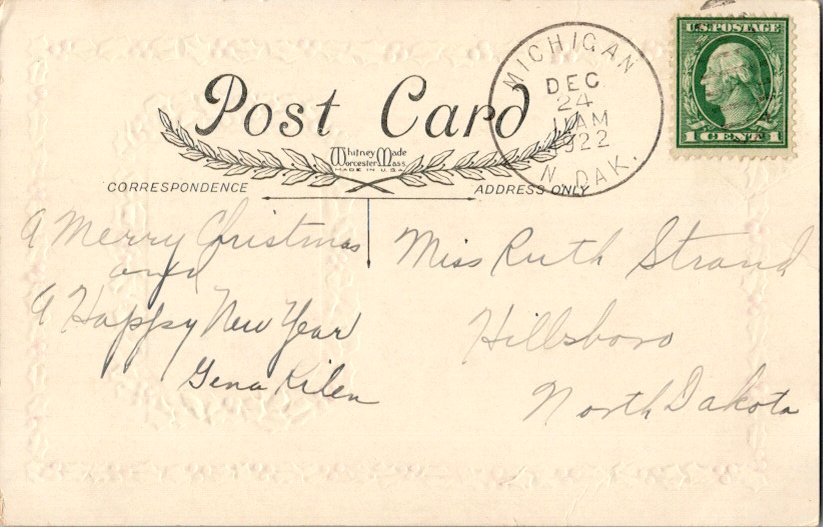 U.S. POSTAGE
1 CENT 1
MICHIGAN
DEC
24
11 AM
1922
N. DAK.
Post Card
Whitney Made
Worcester Mass.
MADE IN U.S.A.
CORRESPONDENCE
ADDRESS ONLY
A Merry Christmas
and
A Happy New Year
Gena Kilen
Miss Ruth Strand
Hillsboro
North Dakota